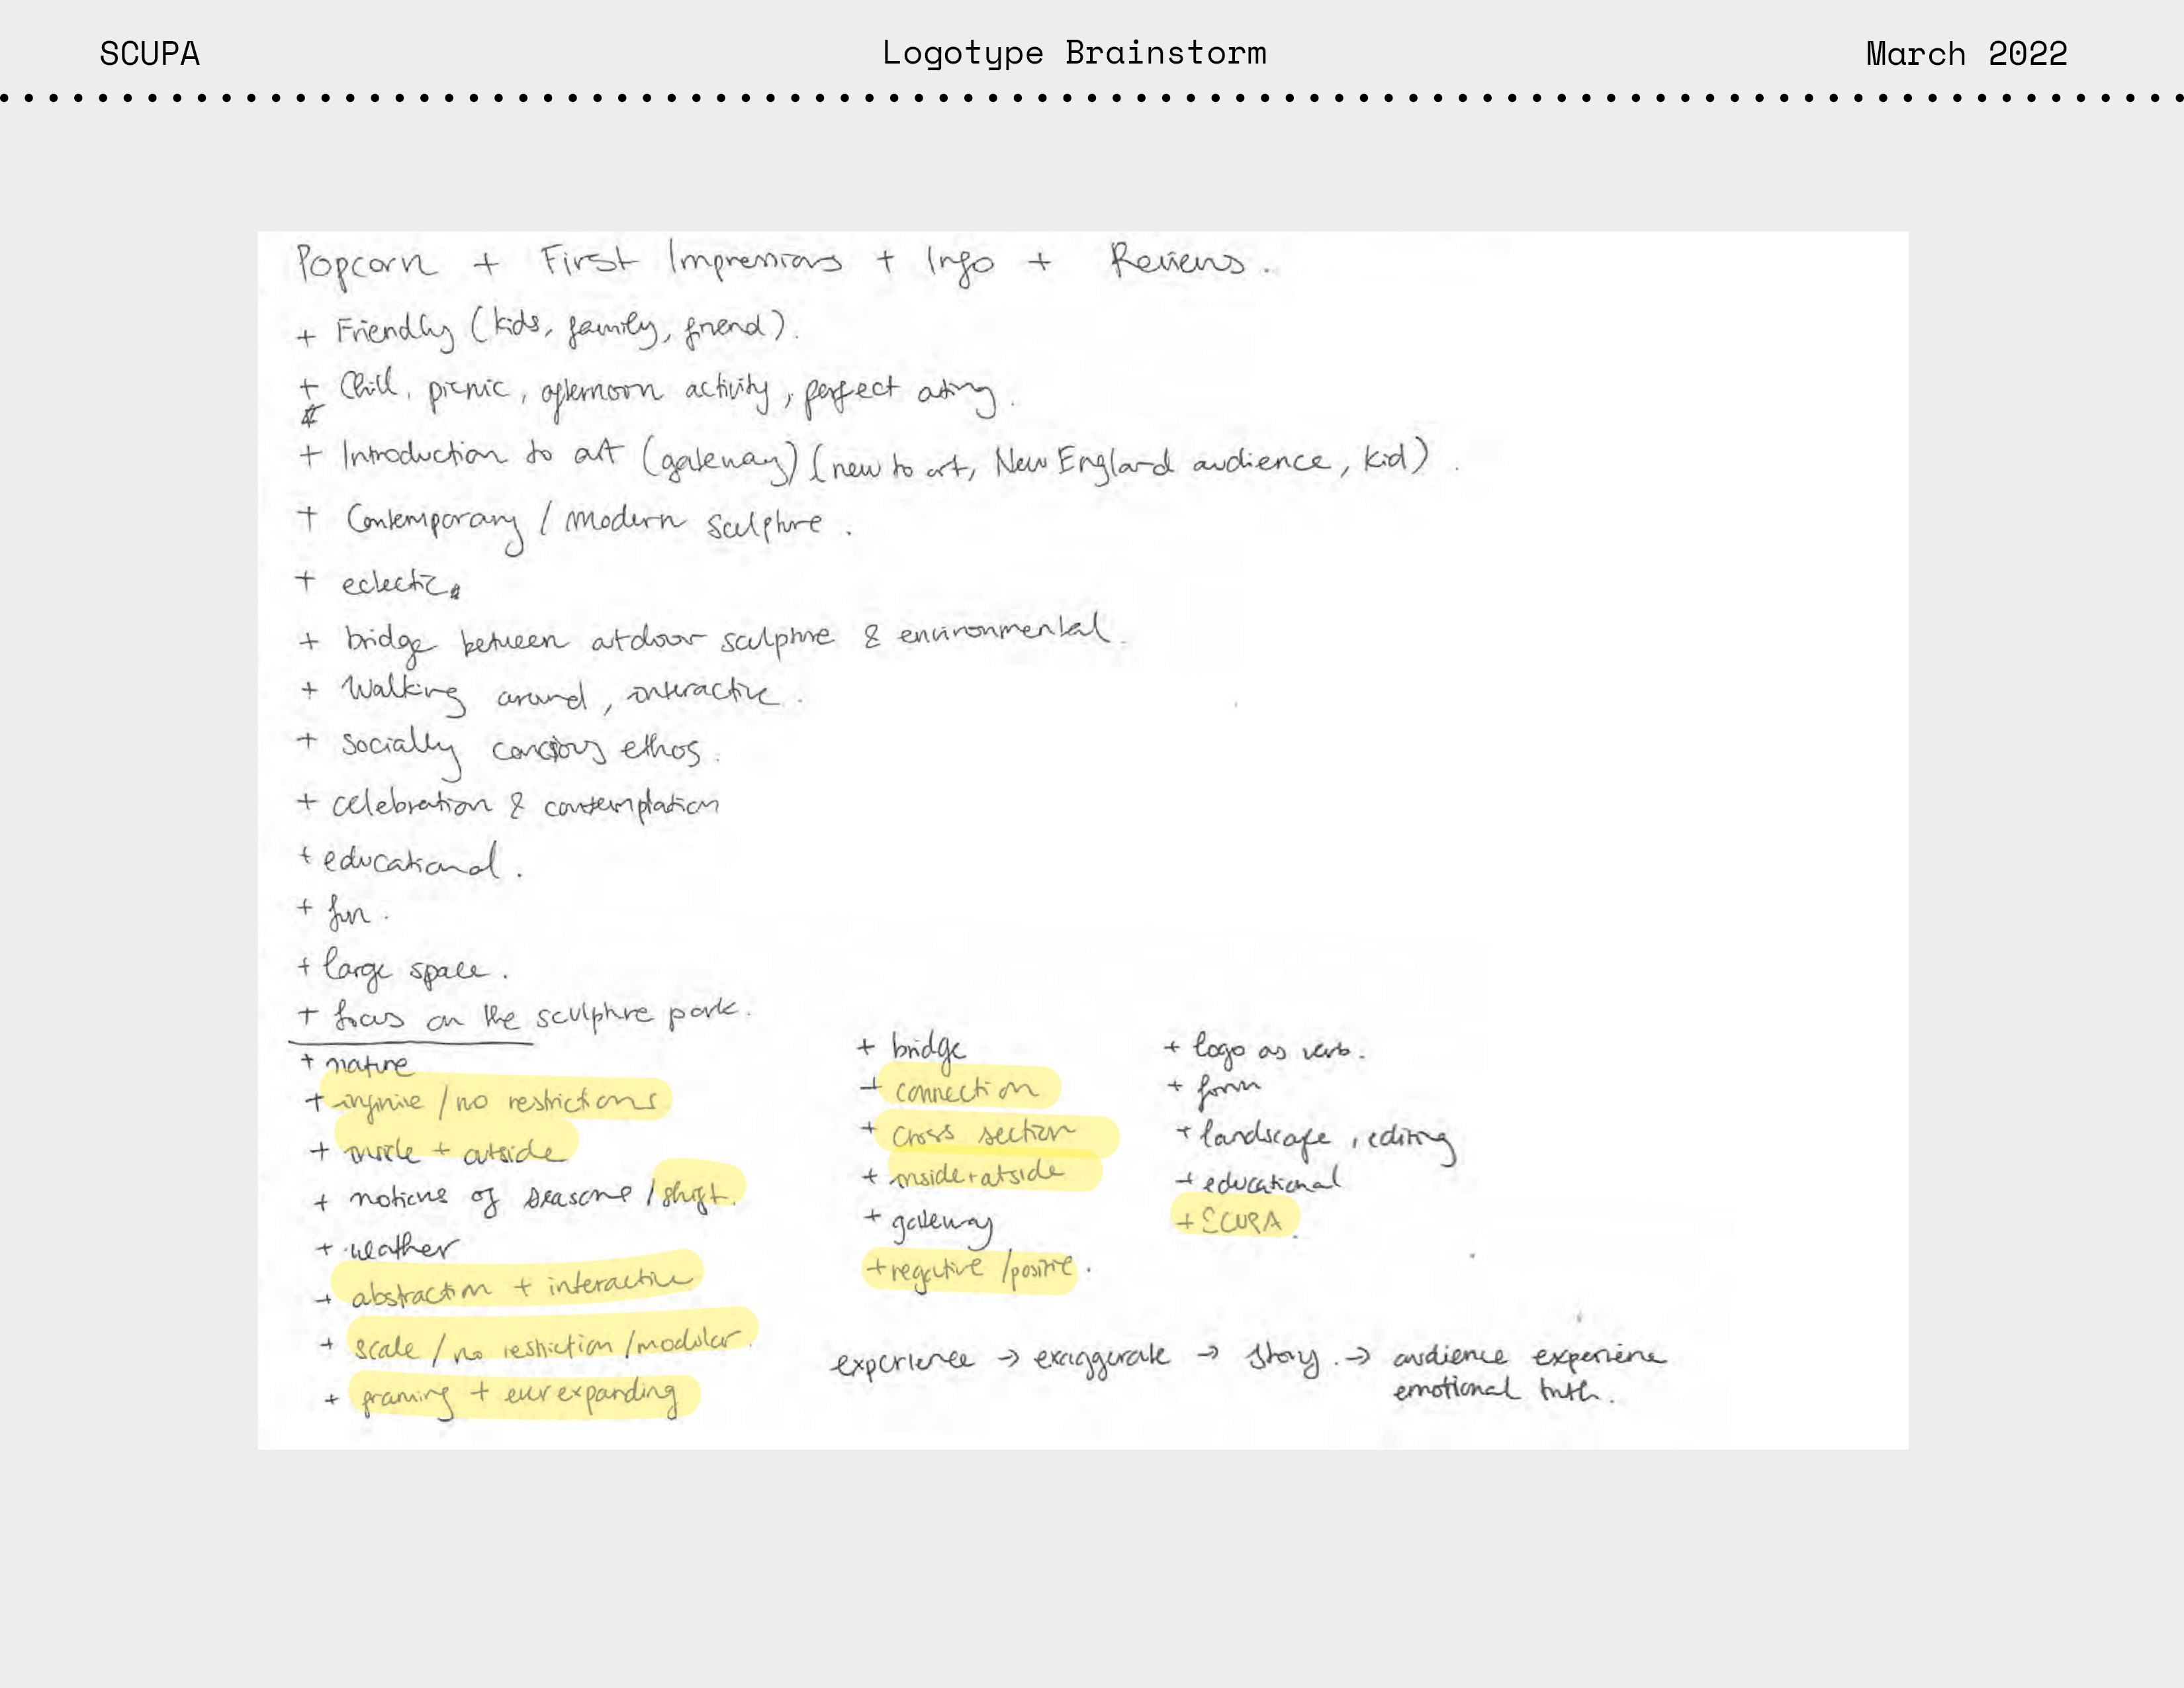 SCUPA
Logotype Brainstorm
March 2022
Popcorn + First Impressions + Info + Reviews.
+ Friendly (kids, family, friend).
+ Chill, picnic, afternoon activity, perfect outing.
+ Introduction to art (gateway) (new to art, New England audience, kid).
+ Contemporary / modern sculpture.
+ eclectic
+ bridge between outdoor sculpture & environmental.
+ Walking around, interactive.
+ socially concious ethos.
+ celebration & contemplation
+ educational.
+ fun.
+ large space.
+ focus on the sculpture park.
+ nature
+ infinite / no restrictions
+ inside + outside
+ notions of seasons / shift.
+ weather
+ abstraction + interactive
+ scale / no restriction / modular.
+ framing + ever expanding
+ bridge
+ connection
+ cross section
+ inside + outside
+ gateway
+ negative / positive.
+ logo as verb.
+ form
+ landscape, editing
+ educational
+ SCUPA
experience → exaggerate → story. → audience experience
emotional truth.